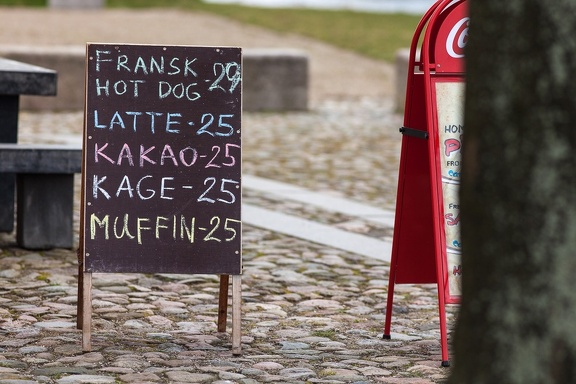 FRANSK
HOT DOG -29
LATTE-25.
KAKAO-25
KAGE-25
MUFFIN-25